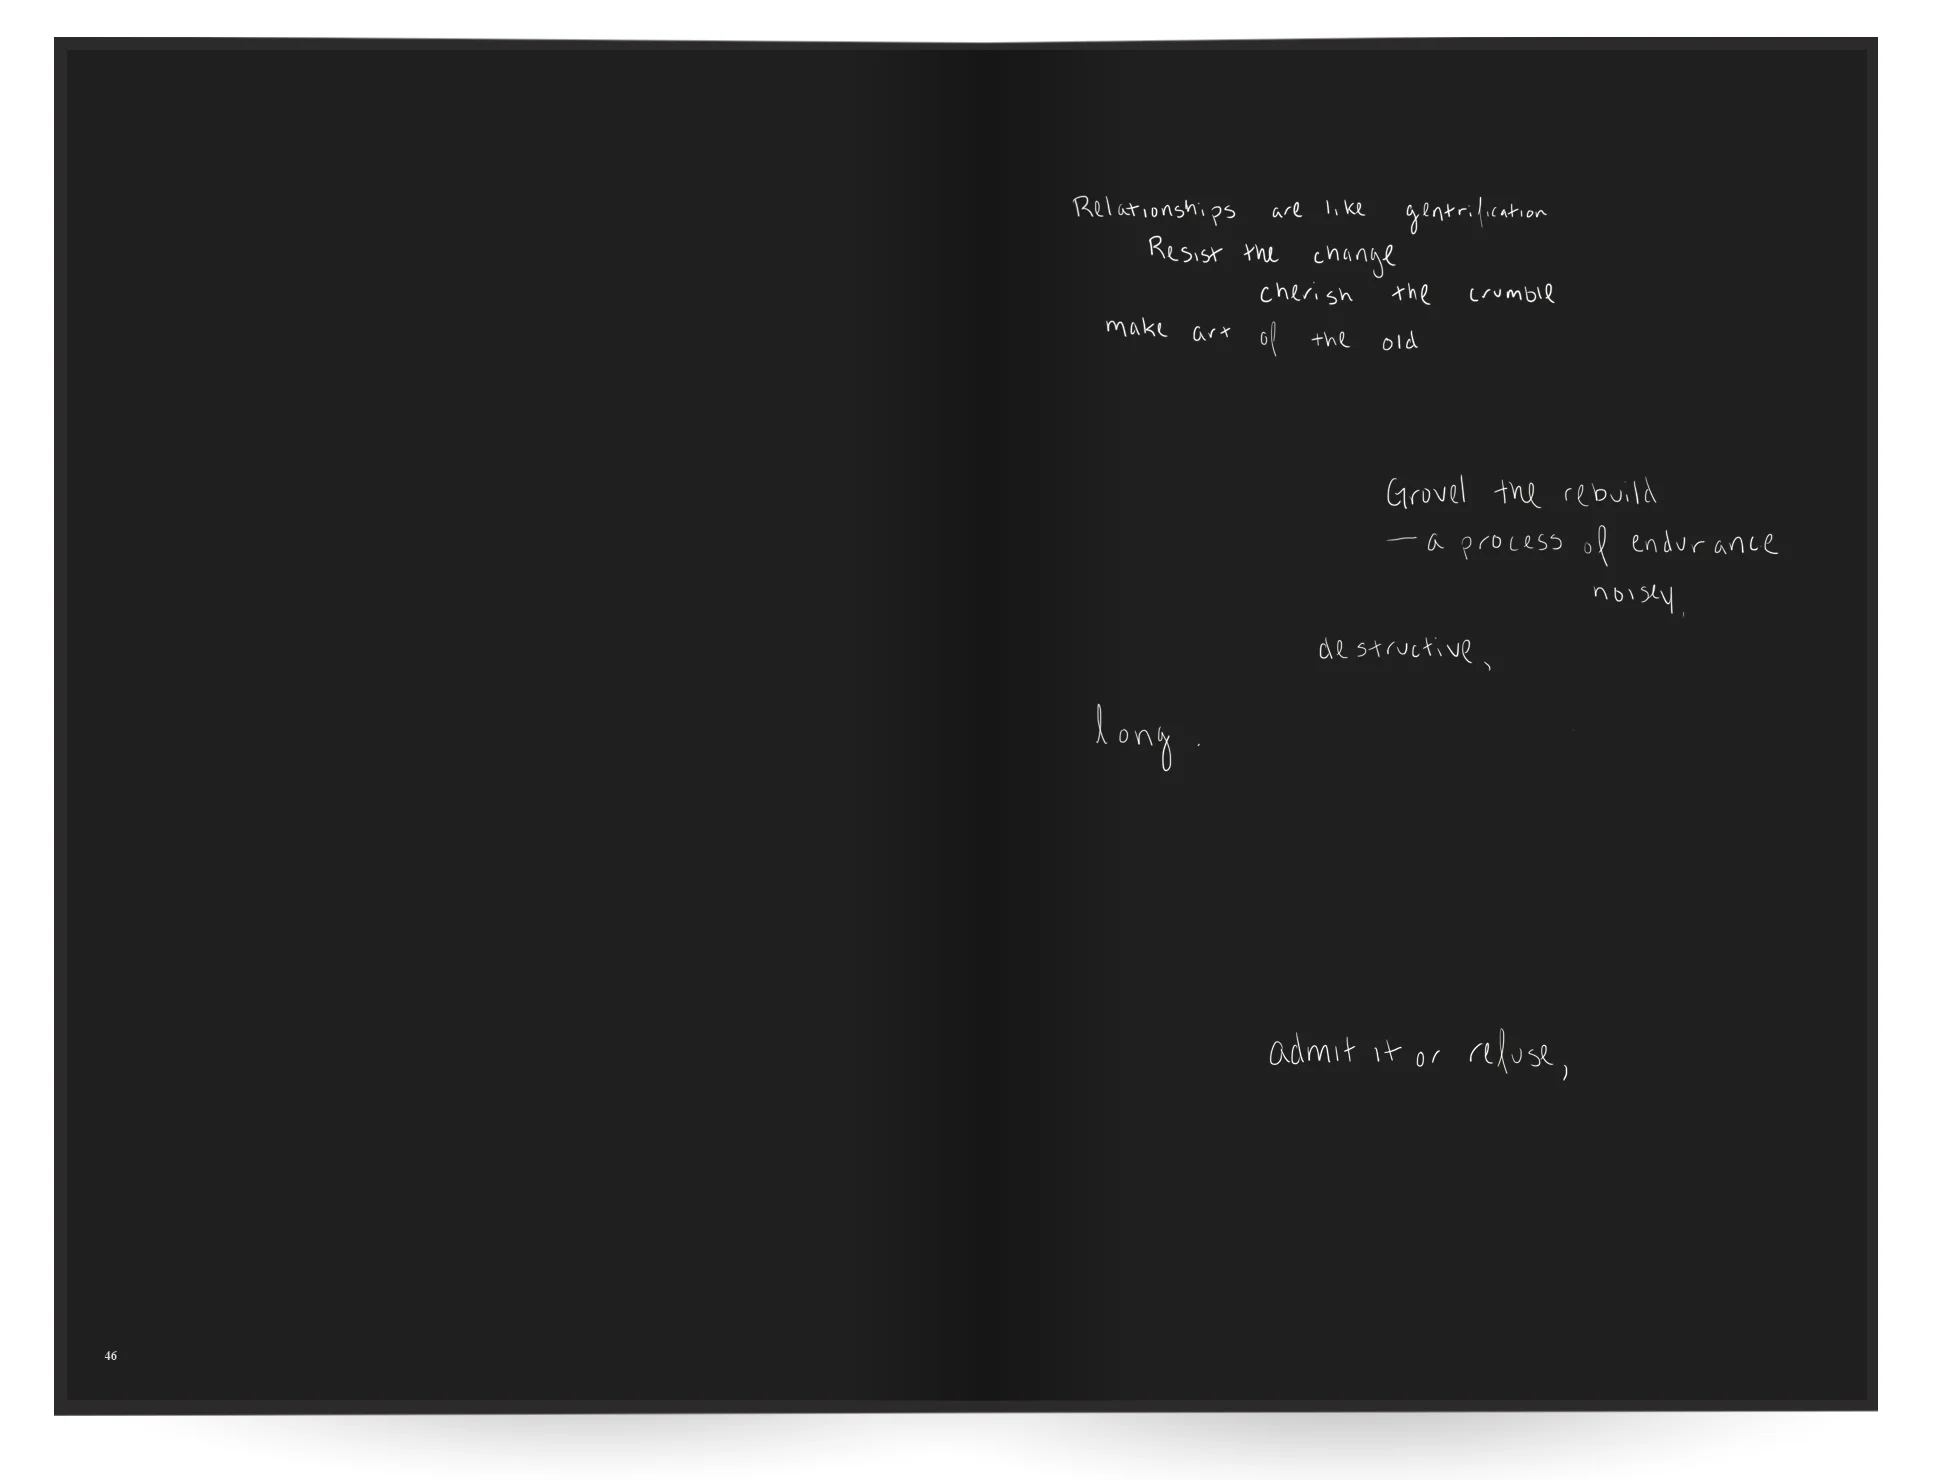 Relationships are like gentrification
Resist the change
cherish the crumble
make art of the old
Grovel the rebuild
— a process of endurance
noisey,
destructive,
long.
admit it or refuse,
46